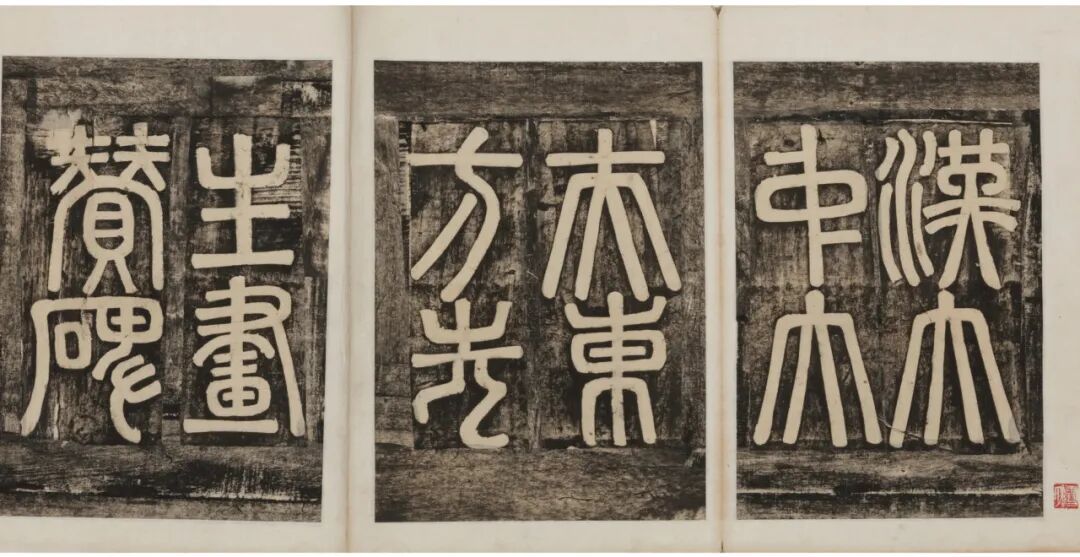 漢大
中大
夫東
方先
生畫
贊碑